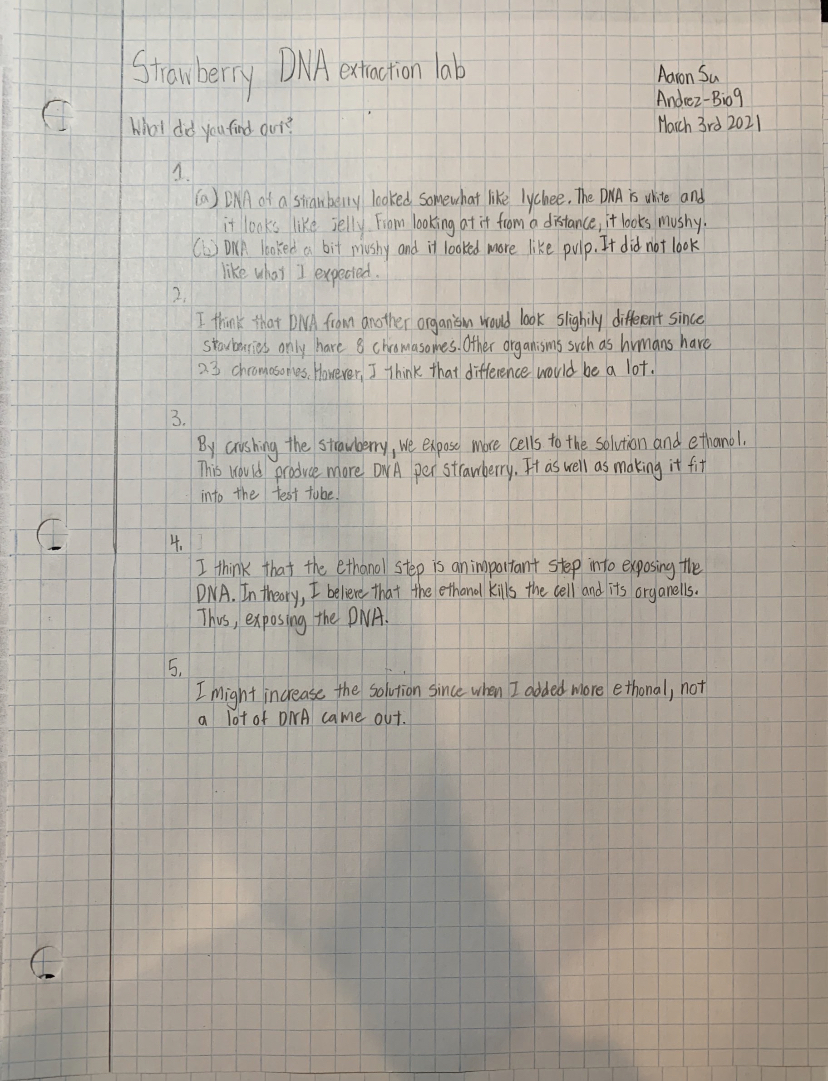 Strawberry DNA extraction lab
Aaron Su
Andrez-Bio9
March 3rd 2021
What did you find out?
1.
(a) DNA of a strawberry looked somewhat like lychee. The DNA is white and
it looks like jelly. From looking at it from a distance, it looks mushy.
(b) DNA looked a bit mushy and it looked more like pulp. It did not look
like what I expected.
2.
I think that DNA from another organism would look slighily different since
stawburries only have 8 chromasomes. Other organisms such as humans have
23 chromosomes. However, I think that difference would be a lot.
3.
By crushing the strawberry, we expose more cells to the solution and ethanol.
This would produce more DNA per strawberry. It as well as making it fit
into the test tube.
4.
I think that the ethanol step is an important step into exposing the
DNA. In theory, I believe that the ethanol kills the cell and its organells.
Thus, exposing the DNA.
5.
I might increase the solution since when I added more ethonal, not
a lot of DNA came out.